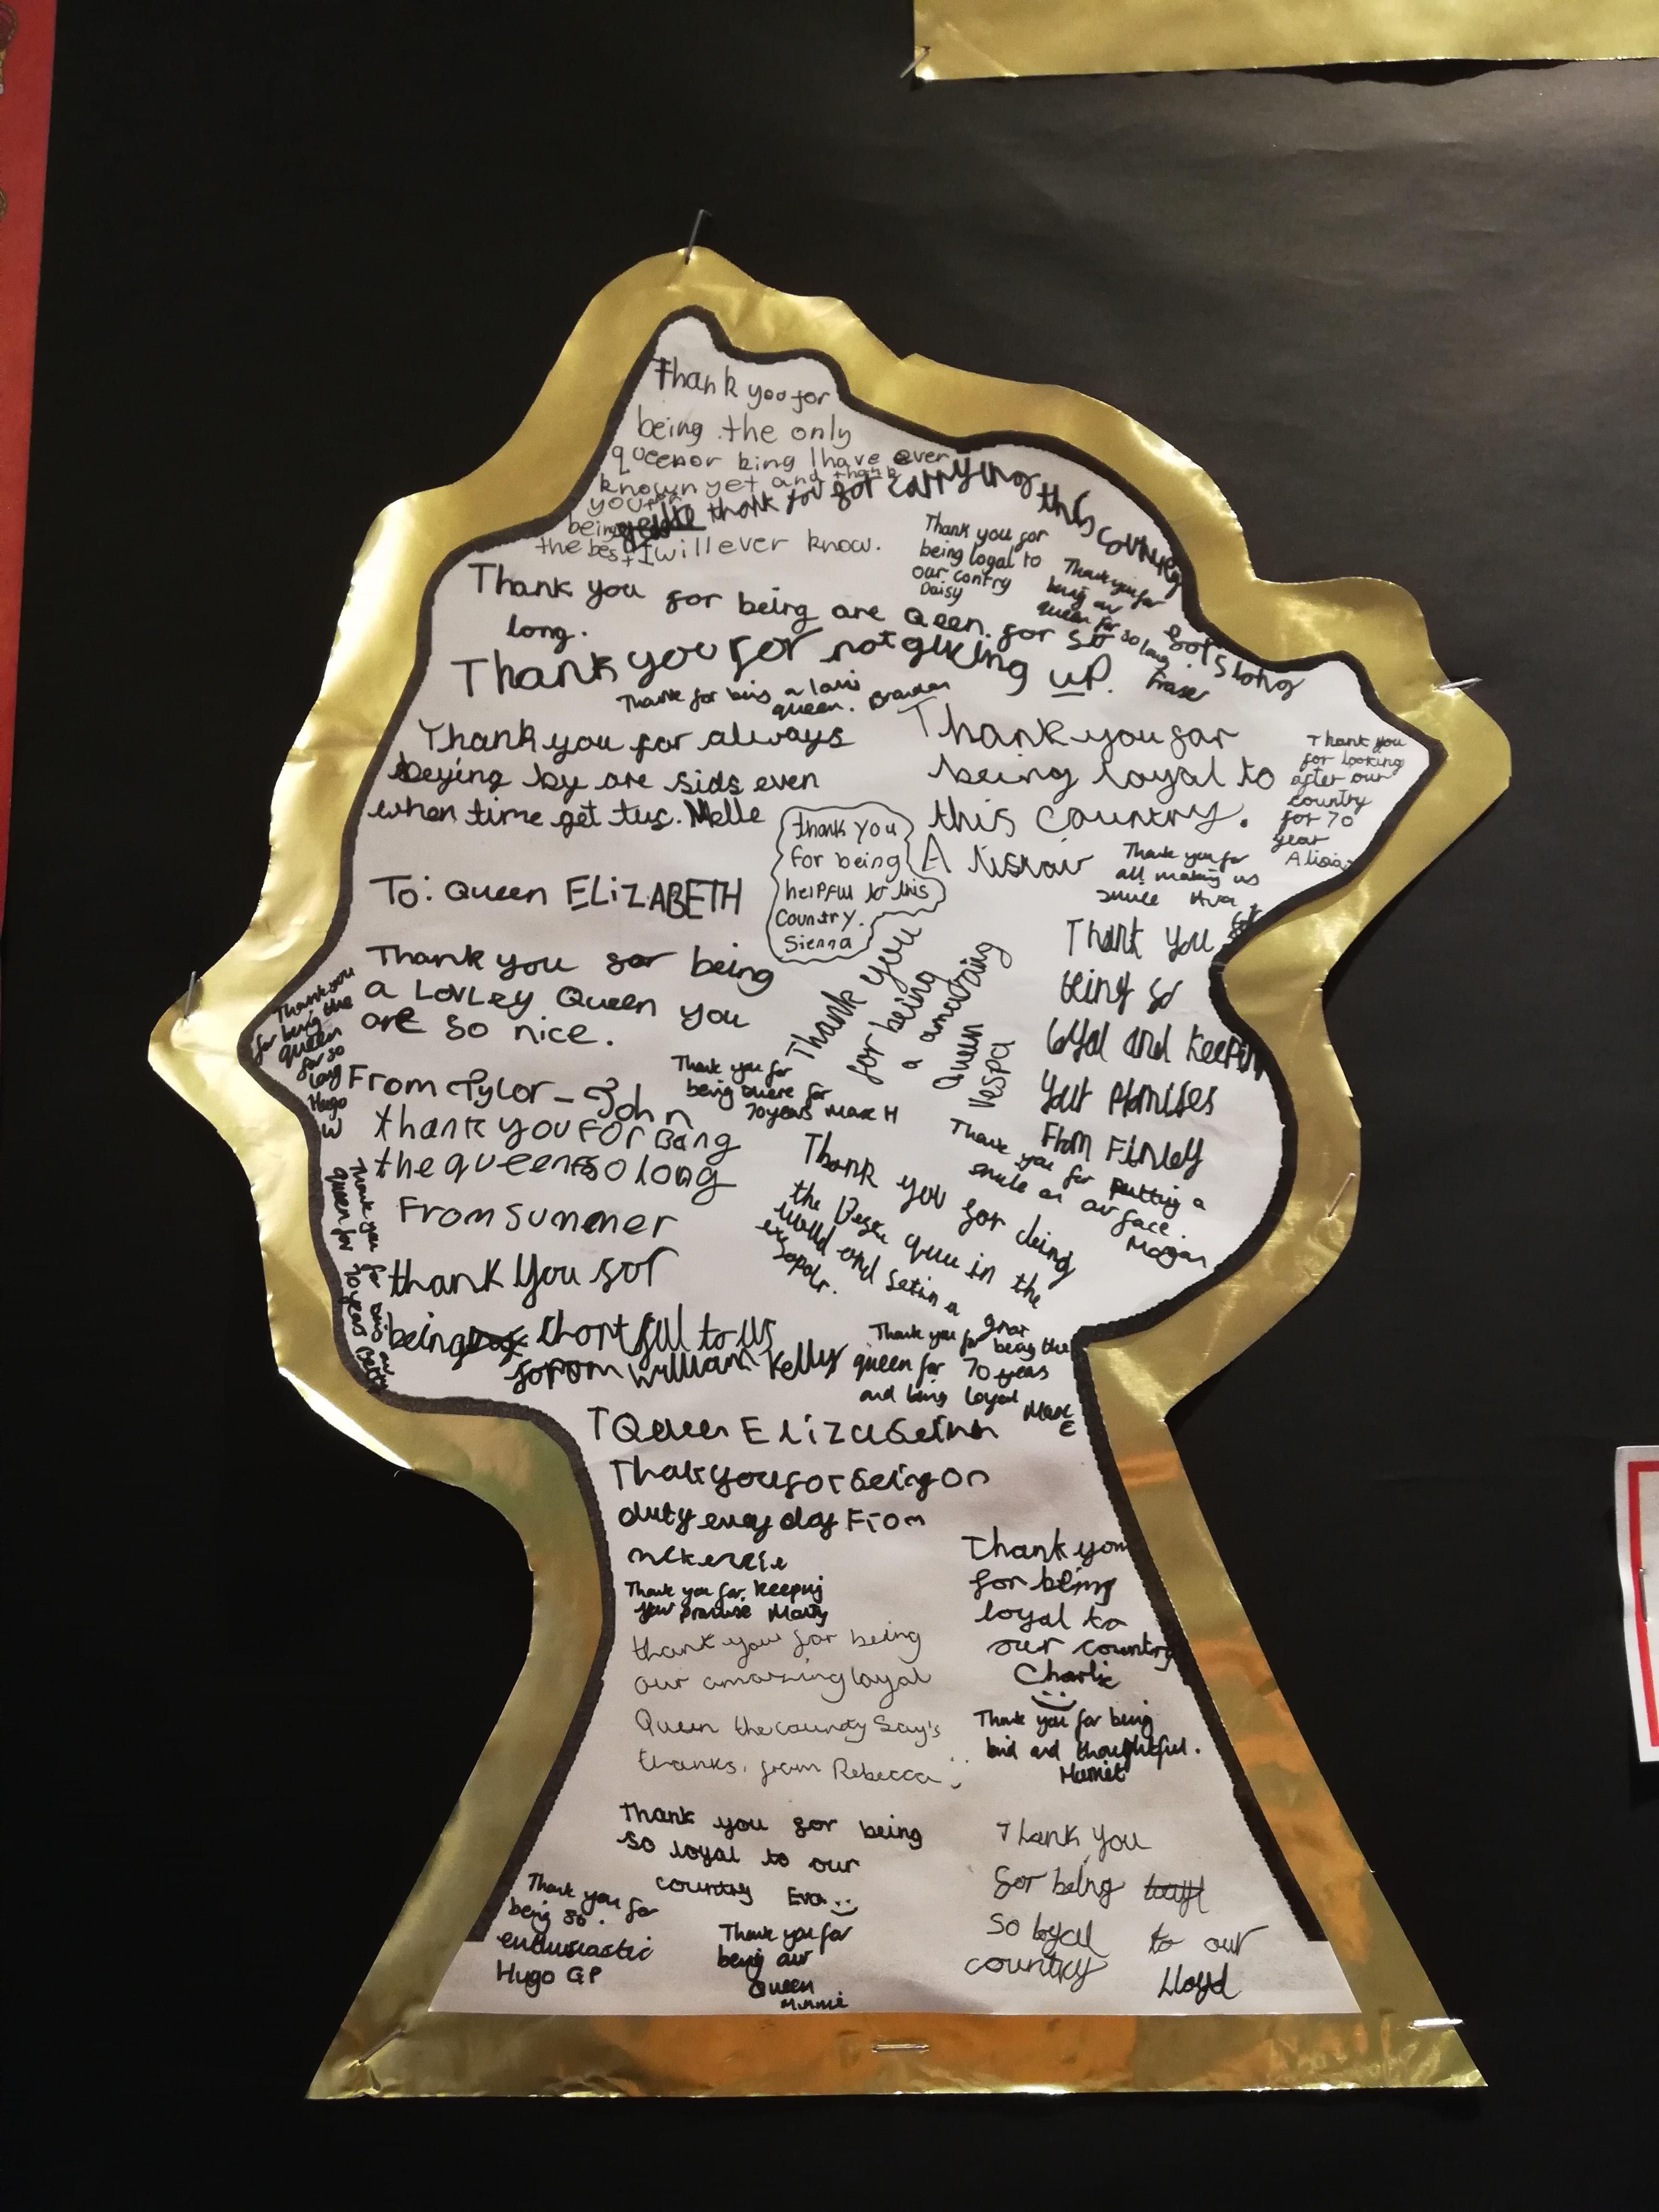 Thank you for
being the only
queen or king I have ever
known yet and thank
you for
being
the best I will ever know.
thank you for carrying this country
for so long
Thank you for
being loyal to
our contry
Daisy
Thank you for
being our
queen for so long.
Fraser
Thank you for being are Qeen. for so
long.
Thank you for not giving up.
Thank for being a
queen. Brandon
Thank you for always
beying by are sids even
when time get tus. Melle
Thank you for
being loyal to
this country.
Alistair
Thank you
for looking
after our
country
for 70
year
Alicia
Thank you for
all making us
smile
thank you
for being
helpful to this
Country.
Sienna
To: Queen ELiZABETH
Thank you for being
a LovLey Queen you
are so nice.
From Tylor-John
Thank you
for being the
queen
for so
long
Hugo
W
Thank you
for being
a amazing
Queen
Vespa
Thank you
being so
loyal and keepin
your promises
From Finley
Thank you for
being there for
70 years Max H
thank you for Bang
the queen so long
From summer
Thank you for putting a
smile on our face.
Megan
Thank you for being
the Best quee in the
world and setin a great
exsapolr.
Thank you for being our
queen for 70 years Betty
thank you for
being thortfull to us
forom William Kelly
Thank you for being the
queen for 70 years
and being loyal
Max
E
T Queen Elizabeth
Thak you for being on
duty every day From
mckenzie
Thank you for keeping
your promise Marty
Thank you
for being
loyal to
our country
Charlie
thank you for being
our amazing loyal
Queen the country Say's
thanks, from Rebecca
Thank you for being
kind and thoughtful.
Harriet
Thank you for being
so loyal to our
country Eva
Thank you
for being
so loyal to our
country Lloyd
Thank you for
being so
enthusiastic
Hugo GP
Thank you for
being our
Queen
Minnie